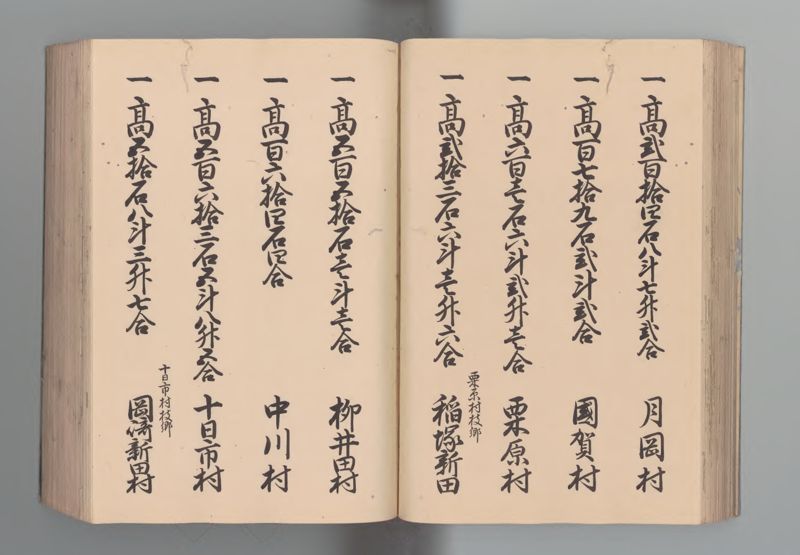 一高弐百拾四石八斗七升弐合 月岡村
一高百七拾九石弐斗弐合 國賀村
一高六百壱石六斗弐升壱合 栗原村
一高弐拾三石六斗壱升六合 栗原村枝郷 稲塚新田
一高五百五拾石壱斗壱合 柳井田村
一高百六拾四石四合 中川村
一高五百六拾三石五斗八升五合 十日市村
一高五拾石八斗三升七合 十日市村枝郷 岡崎新田村